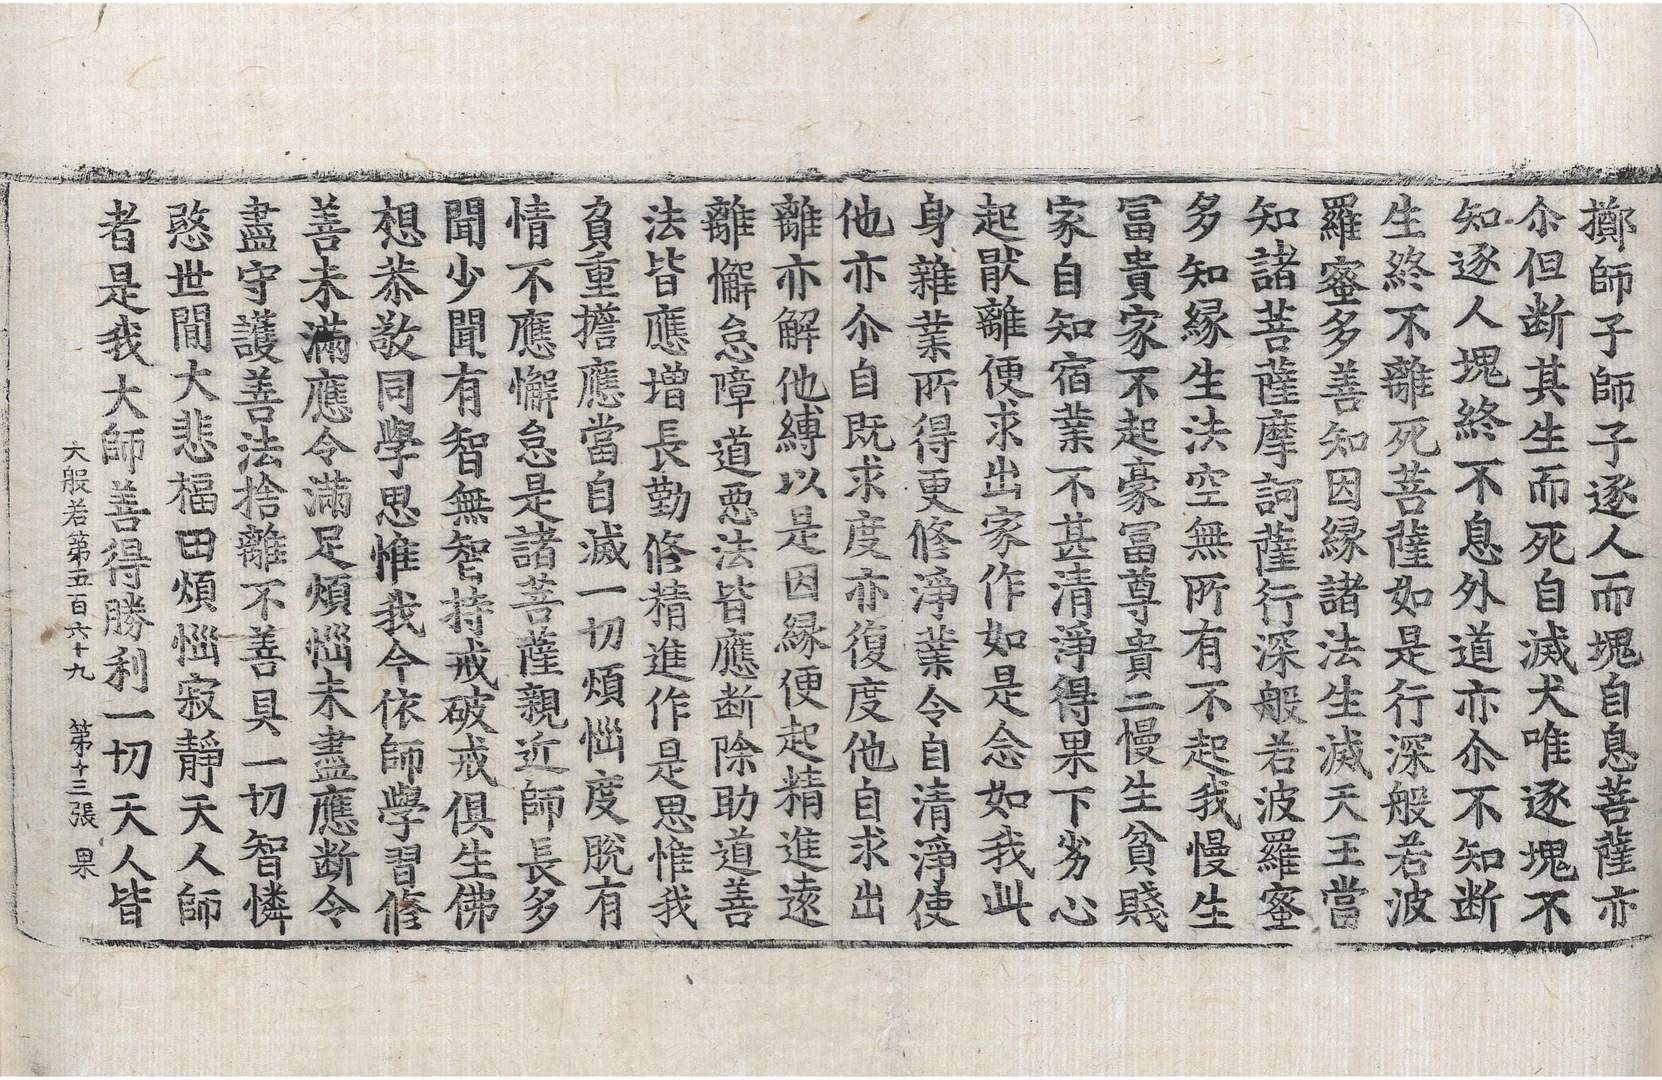 擲師子師子逐人而塊自息菩薩亦
尒但断其生而死自滅犬唯逐塊不
知逐人塊終不息外道亦尒不知断
生終不離死菩薩如是行深般若波
羅蜜多善知因緣諸法生滅天王當
知諸菩薩摩訶薩行深般若波羅蜜
多知緣生法空無所有不起我慢生
冨貴家不起豪冨尊貴二慢生貧賤
家自知宿業不甚清淨得果下劣心
起猒離便求出家作如是念如我此
身雜業所得更修淨業令自清淨使
他亦尒自既求度亦復度他自求出
離亦解他縛以是因緣便起精進遠
離懈怠障道惡法皆應断除助道善
法皆應增長勤修精進作是思惟我
負重擔應當自滅一切煩惱度脫有
情不應懈怠是諸菩薩親近師長多
聞少聞有智無智持戒破戒俱生佛
想恭敬同學思惟我今依師學習修
善未滿應令滿足煩惱未盡應断令
盡守護善法捨離不善具一切智憐
愍世間大悲福田煩惱寂靜天人師
者是我大師善得勝利一切天人皆
大般若第五百六十九 第十三張 果